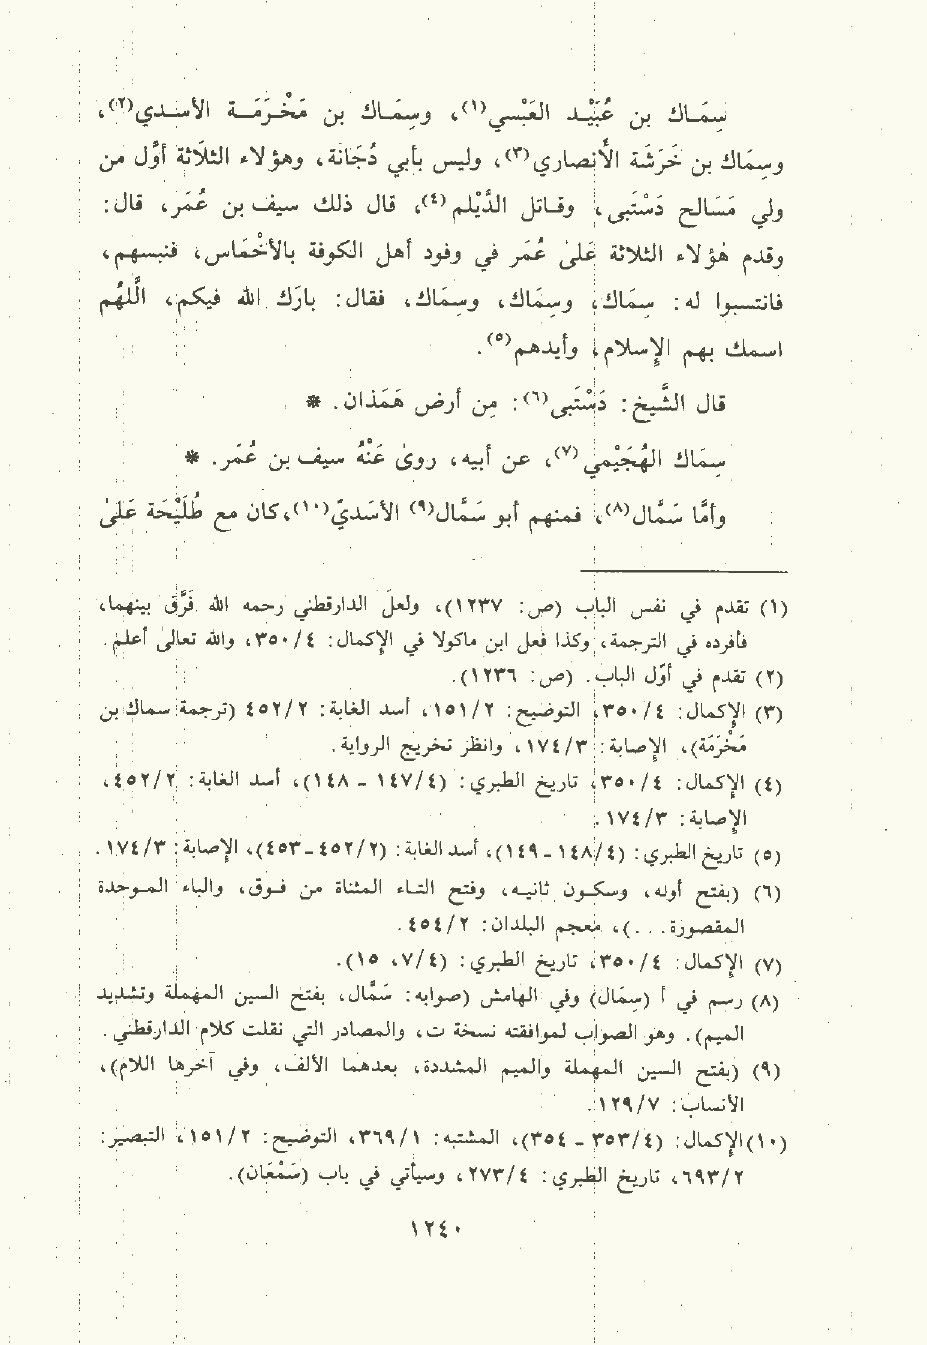 سِمَاك بن عُبَيْد العَبْسي(١)، وسِمَاك بن مَخْرَمَة الأسدي(٢)،
وسِمَاك بن خَرَشَة الأنصاري(٣)، وليس بأبي دُجَانة، وهؤلاء الثَّلاثة أوَّل من
ولي مَسَالح دَسْتَبى، وقاتل الدَّيْلم(٤)، قال ذلك سيف بن عُمَر، قال:
وقدم هؤلاء الثلاثة عَلىٰ عُمَر في وفود أهل الكوفة بالأخْمَاس، فنسبهم،
فانتسبوا له: سِمَاك، وسِمَاك، وسِمَاك، فقال: بارَك الله فيكم، اللَّهُم
اسمك بهم الإسلام، وأيدهم(٥).
قال الشَّيخ: دَسْتَبى(٦): مِن أرض هَمَذان. *
سِمَاك الهُجَيْمي(٧)، عن أبيه، روىٰ عَنْهُ سيف بن عُمَر. *
وأمَّا سَمَّال(٨)، فمنهم أبو سَمَّال(٩) الأَسَديّ(١٠)، كان مع طُلَيْحَة عَلىٰ
(١) تقدم في نفس الباب (ص: ١٢٣٧)، ولعلّ الدارقطني رحمه الله فَرَّق بينهما،
فأفرده في الترجمة، وكذا فعل ابن ماكولا في الإكمال: ٤/٣٥٠، والله تعالىٰ أعلم.
(٢) تقدم في أوّل الباب. (ص: ١٢٣٦).
(٣) الإكمال: ٤/٣٥٠، التوضيح: ٢/١٥١، أسد الغابة: ٢/٤٥٢ (ترجمة سماك بن
مَخْرَمَة)، الإصابة: ٣/١٧٤، وانظر تخريج الرواية.
(٤) الإكمال: ٤/٣٥٠، تاريخ الطبري: (٤/١٤٧ - ١٤٨)، أسد الغابة: ٢/٤٥٢،
الإصابة: ٣/١٧٤.
(٥) تاريخ الطبري: (٤/١٤٨ - ١٤٩)، أسد الغابة: (٢/٤٥٢ - ٤٥٣)، الإصابة: ٣/١٧٤.
(٦) (بفتح أوله، وسكون ثانيه، وفتح التاء المثناة من فوق، والباء الموحدة
المقصورة...)، معجم البلدان: ٢/٤٥٤.
(٧) الإكمال: ٤/٣٥٠، تاريخ الطبري: (٤/٧، ١٥).
(٨) رسم في أ (سِمَال) وفي الهامش (صوابه: سَمَّال، بفتح السين المهملة وتشديد
الميم). وهو الصواب لموافقته نسخة ت، والمصادر التي نقلت كلام الدارقطني.
(٩) (بفتح السين المهملة والميم المشددة، بعدهما الألف، وفي آخرها اللام)،
الأنساب: ٧/١٢٩.
(١٠) الإكمال: (٤/٣٥٣ - ٣٥٤)، المشتبه: ١/٣٦٩، التوضيح: ٢/١٥١، التبصير:
٢/٦٩٣، تاريخ الطبري: ٤/٢٧٣، وسيأتي في باب (سَمْعَان).
١٢٤٠